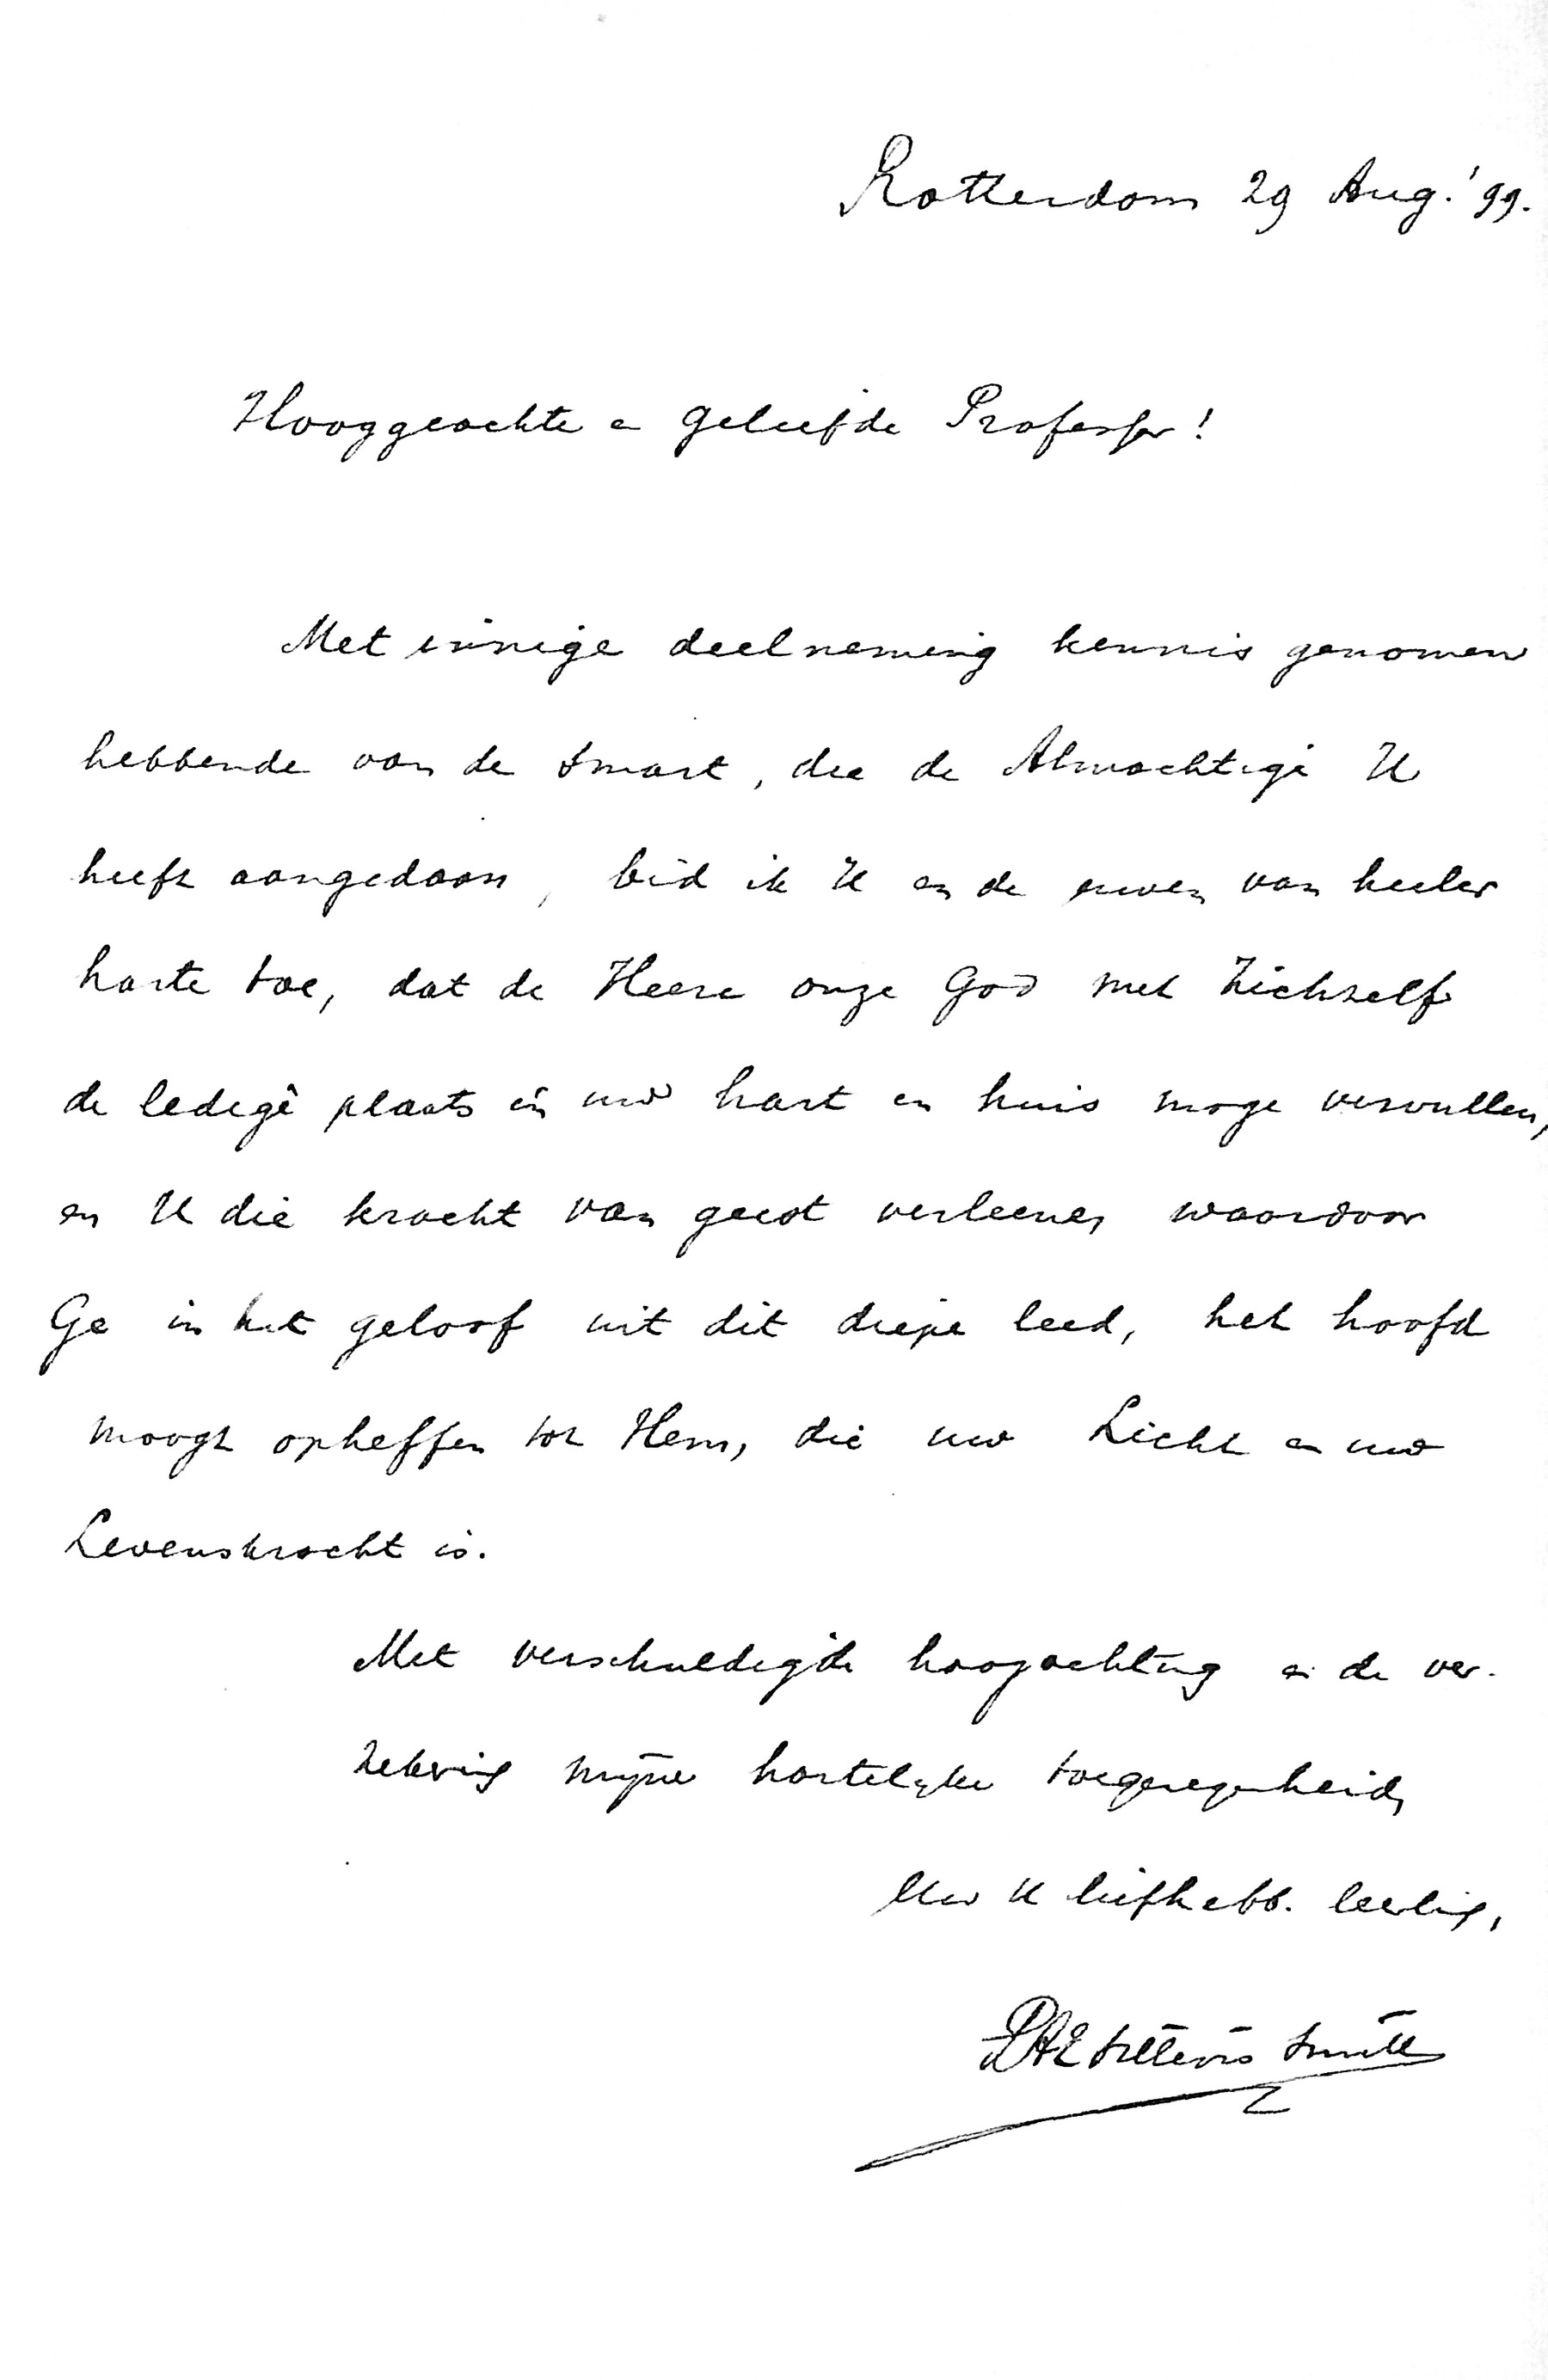 Rotterdam 29 Aug. '99.
Hooggeachte en geliefde Professor!
Met innige deelneming kennis genomen
hebbende van de smart, die de Almachtige U
heeft aangedaan, bid ik U en de uwen van heeler
harte toe, dat de Heere onze God met Zichzelf
de ledige plaats in uw hart en huis moge vervullen,
en U die kracht van geest verleenen waardoor
Ge in het geloof uit dit diepe leed, het hoofd
moogt opheffen tot Hem, die uw Licht en uw
Levenskracht is.
Met verschuldigde hoogachting en de ver-
zekering mijner hartelijke toegenegenheid,
Uw U liefhebb. leerling,
PAE Sillevis Smitt